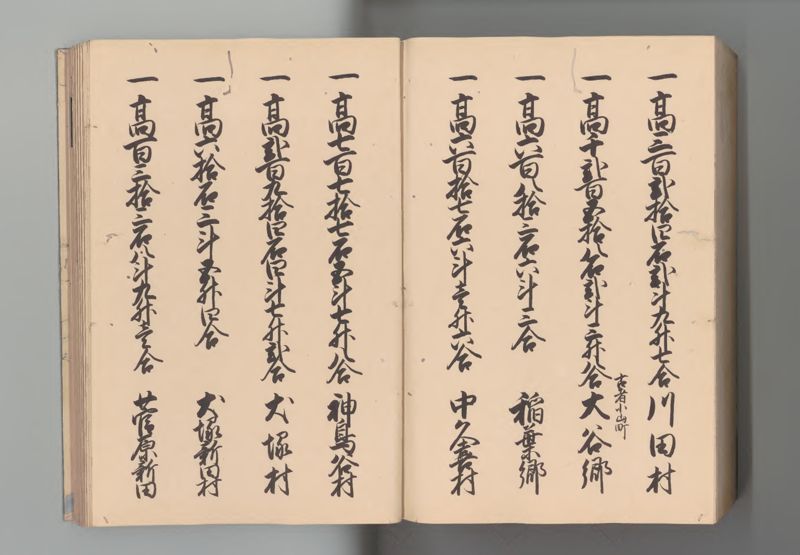 一高三百弐拾四石弐斗九升七合 川田村
一高千弐百五拾八石弐斗三升八合 大谷郷
古者小山町
一高六百八拾三石六斗三合 稲葉郷
一高六百拾七石六斗壱升六合 中久喜村
一高七百七拾七石五斗七升八合 神鳥谷村
一高弐百九拾四石四斗七升弐合 犬塚村
一高六拾石三斗五升四合 犬塚新田村
一高百三拾三石八斗九升壱合 新田